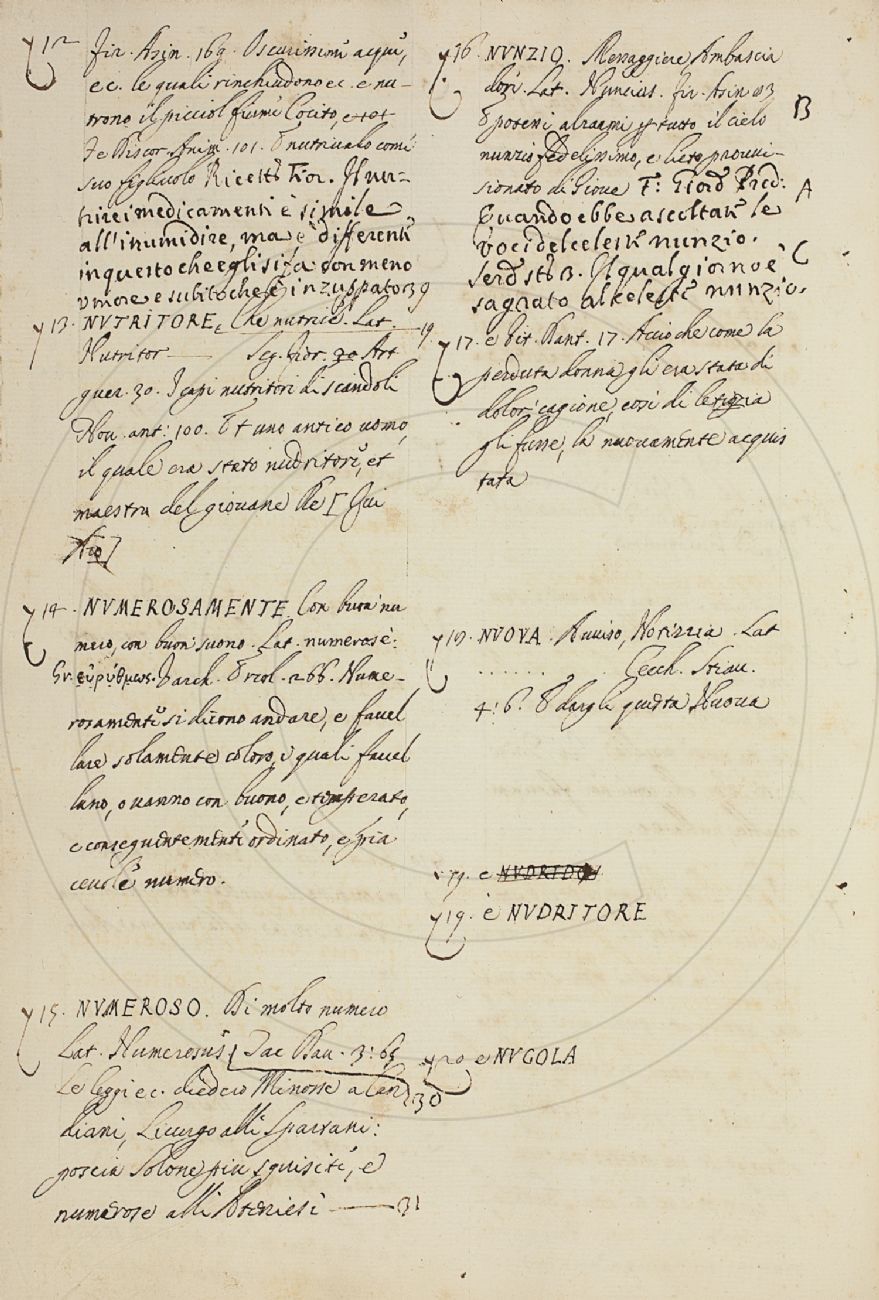 12 fir. Asin. 169. Oscurissimi acque,
ec. le quali rinchiudono ec. e nu-
trono il picciol fiume Cocito,
Discor. Anim. 101. E nutrivalo come
suo figliuolo Ricett. Fior. Il nu-
trire i medicamenti è simile
all'inumidire, ma è differente
in questo che egli si fa con meno
umore e subito che è inzuppato 29
13. NVTRITORE, Che nutrisce. Lat. 19
Nutritor Seg. Fior. 20 Art
guer. 30. I capi nutritori di scandoli
Nou. ant. 100. Et uno antico uomo,
il quale era stato nudritore, et
maestru del giouane Re [Qui
Aio]
14. NVMEROSAMENTE Con buon nu
mero, con buon suono. Lat. numerosè:
Gr. εὐρύθμως. Varch. Ercol. 266. Nume-
rosamente si dicono andare, e fauel
lare solamente coloro, i quali fauel
lano, o uanno con buono, e temperato,
e conseguentemente ordinato, e pia
ceuole numero.
15. NVMEROSO. Di molto numero
Lat. Numerosus Dau. 3: 65
Le leggi ec. diede Minosse a Can 30
diani, Licurgo alli Spartani:
poscia Solone piu squisite, e
numerose alli Ateniesi 31
16. NVNZIO. Messaggiere Ambascia
dore. Lat. Nuncius. fir. Asin 83
E potemi tutto il cielo B
nunzio fedelissimo, e lieto proui-
sionato di Gioue F: Giord Pred. A
Quando ebbe ascoltate le
voci del celeste nunzio. C
Serd. st. B. Il qual giorno è
sagrato al celeste nunzio.
17. e Vit. Dant. 17. Accio che come la
perduta donna gli era stata di
dolore cagione, così di letizia
gli fusse, la nuouamente acquis
tata
18. NVOVA. Auuiso, Notizia. Lat
. . . . . . . Cecch. Stiau.
4: 6. E dargli questa Nuoua
19. e NVDRIDO
19. e NVDRITORE
20 e NVGOLA